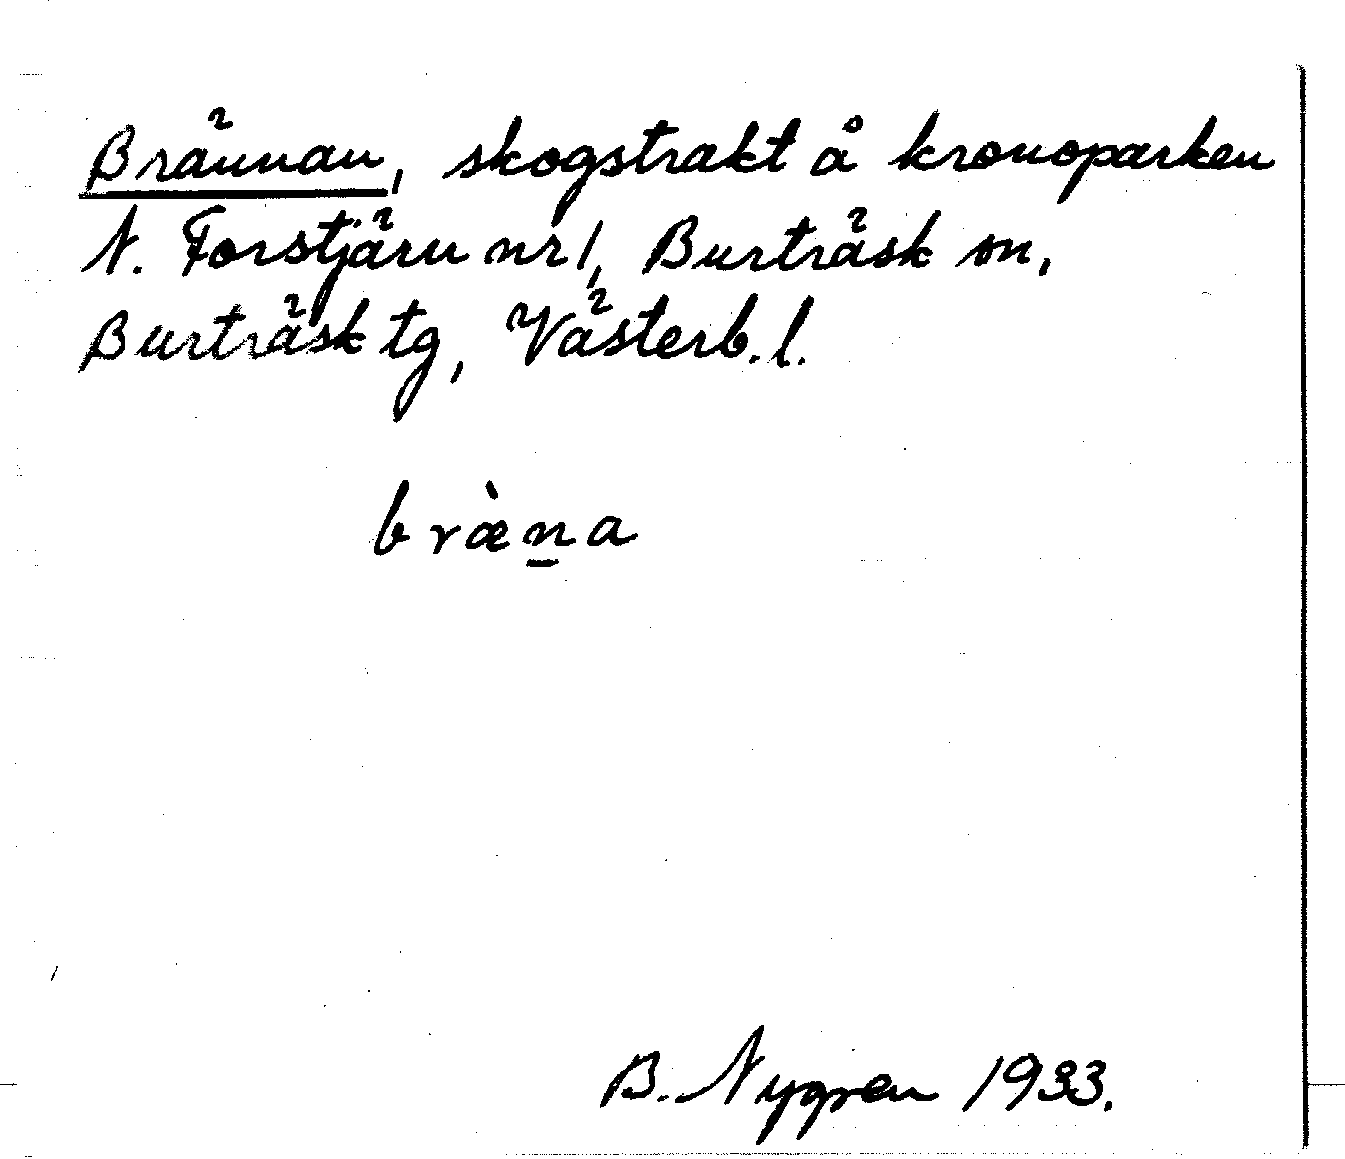 Brännan, skogstrakt å kronoparken
N. Forstjärn nr 1, Burträsk sn,
Burträsk tg, Västerb. l.
bræ̀n̲a
B. Nygren 1933.